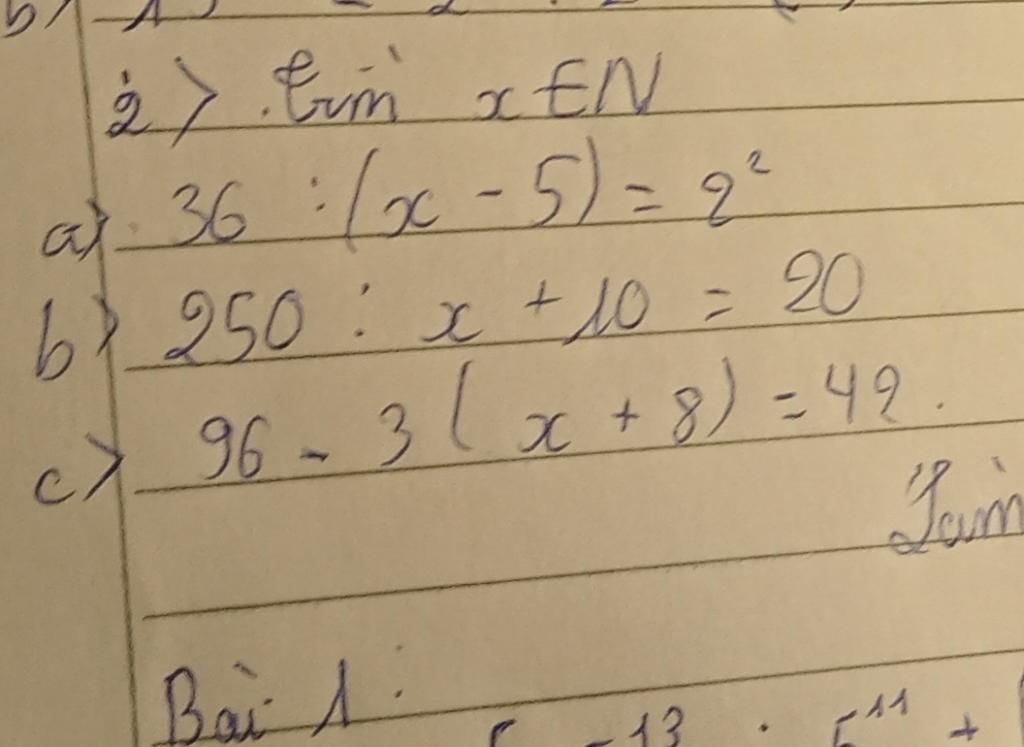 2> tìm x ∈ N
a) 36 : (x - 5) = 2²
b) 250 : x + 10 = 20
c> 96 - 3 (x + 8) = 42.
Bài 1: